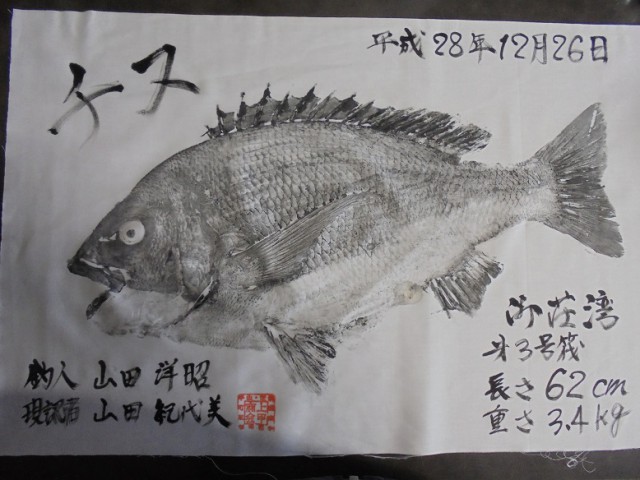 平成28年12月26日
チヌ
御荘湾
才3号筏
長さ62cm
重さ3.4kg
釣人 山田 洋昭
現認者 山田 紀代美